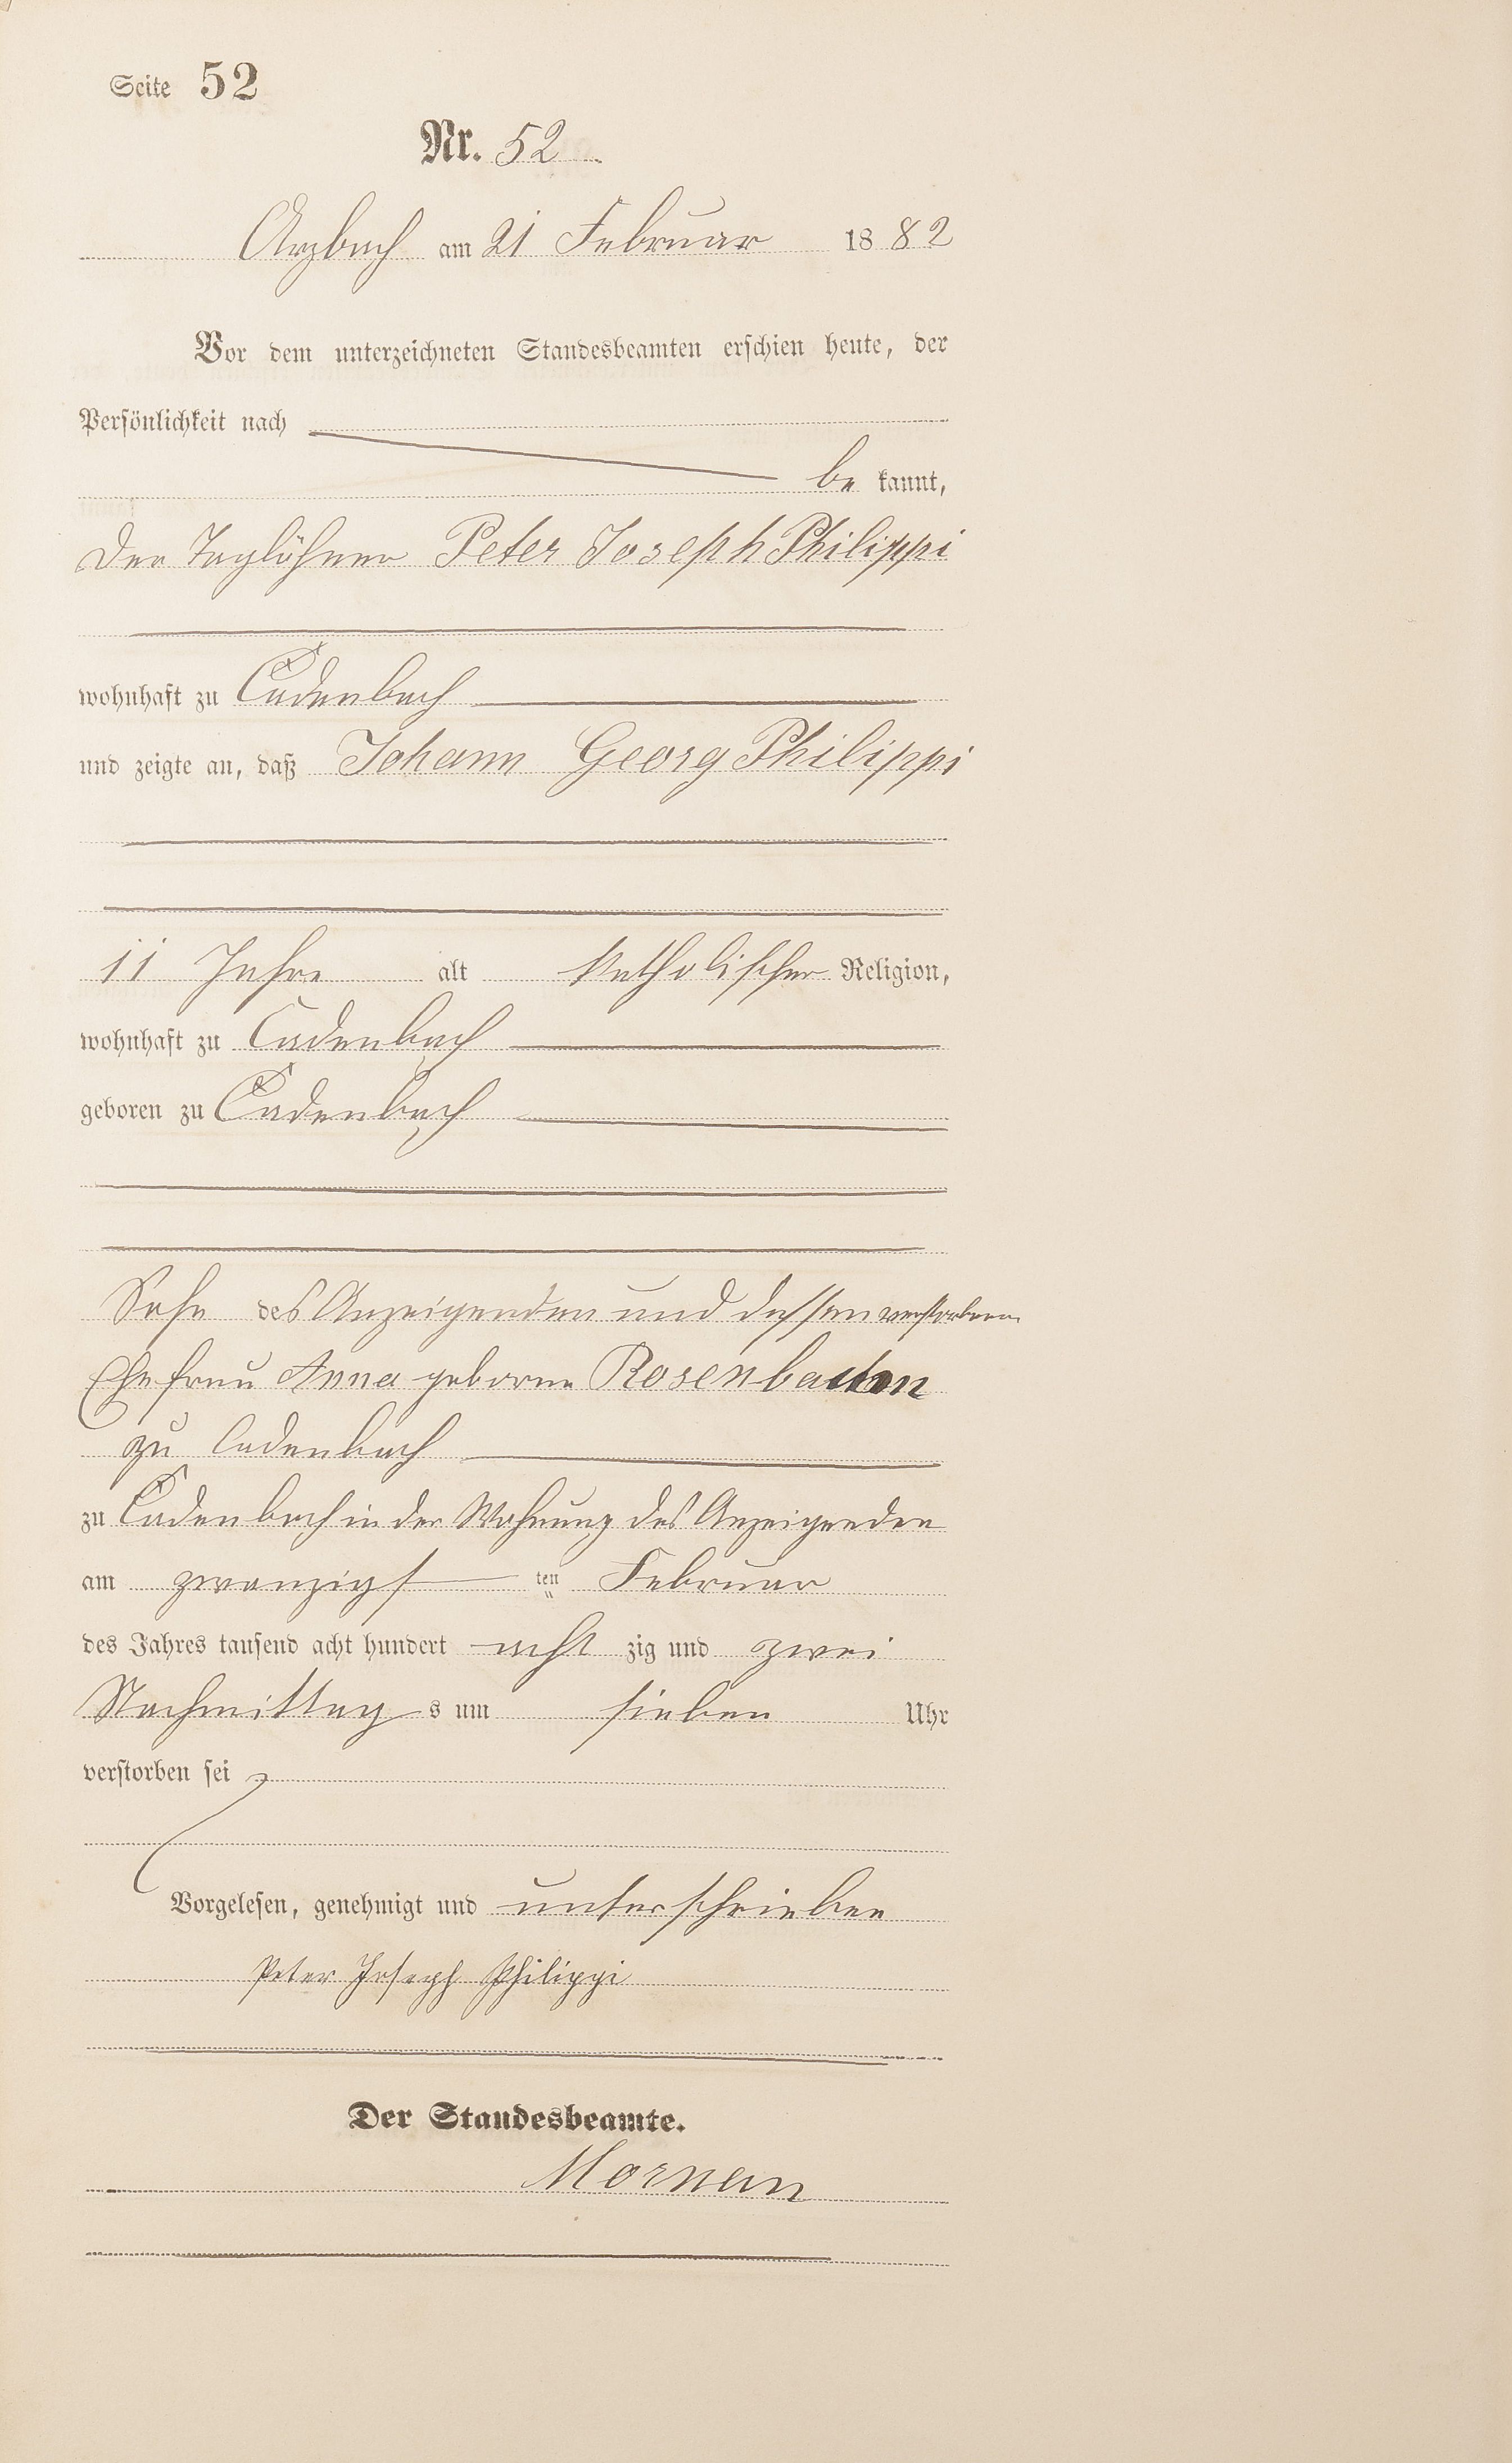 Seite 52
Nr. 52
Arzbach am 21 Februar 1882
Vor dem unterzeichneten Standesbeamten erschien heute, der
Persönlichkeit nach
be kannt,
der Taglöhner Peter Joseph Philippi
wohnhaft zu Cadenbach
und zeigte an, daß Johann Georg Philippi
11 Jahre alt katholischer Religion,
wohnhaft zu Cadenbach
geboren zu Cadenbach
Sohn des Anzeigenden und dessen verstorbenen
Ehefrau Anna geborne
zu Cadenbach
zu Cadenbach in der Wohnung des Anzeigenden
am zwanzigst ten Februar
des Jahres tausend acht hundert acht zig und zwei
Nachmittag s um sieben Uhr
verstorben sei
Vorgelesen, genehmigt und unterschrieben
Peter Joseph Philippi
Der Standesbeamte.